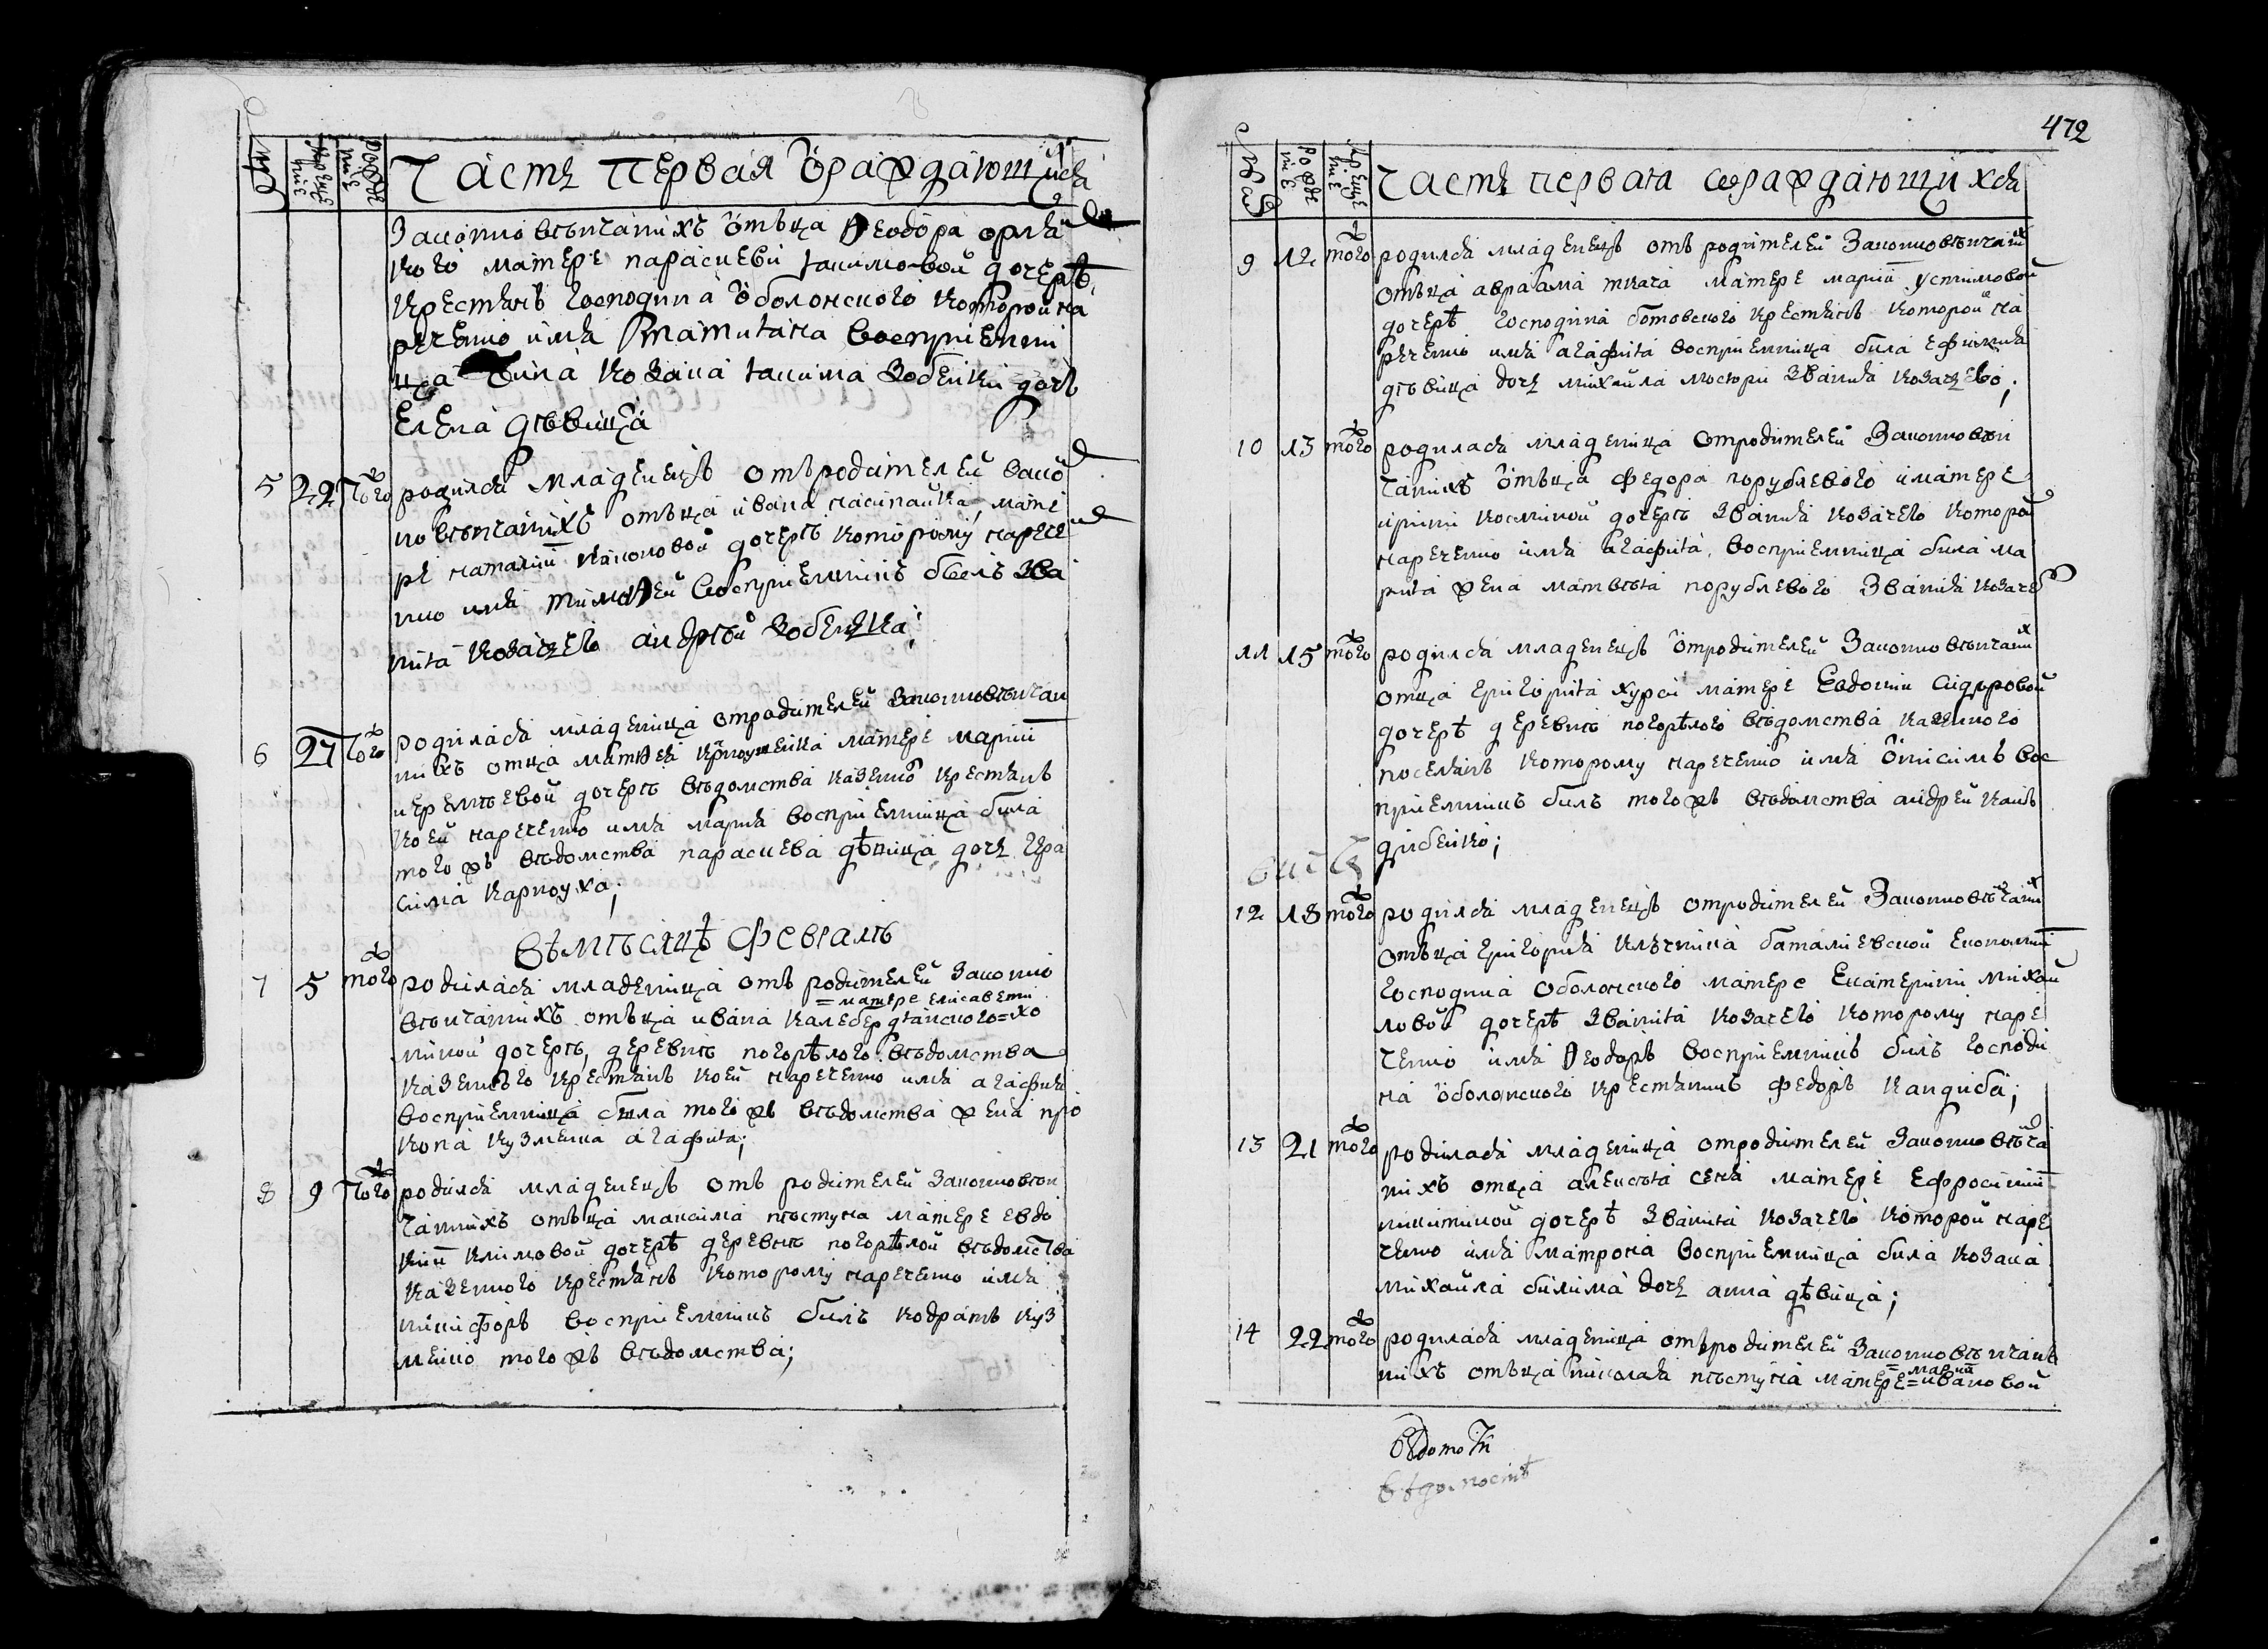 Часть первая ѡ раждающихся
Законновѣнчанихъ ѿтъца Ѳеодора
кого матере параскеви іакимовой дочерѣ
крестянъ господина ѡболонского которой на
речено имя татіана восприемни
ца била козака іакима Зобенки дочь
елена дѣвица
5 22 того родился младенецъ отъ родителей закон
новѣнчанихъ отъца ивана насипайка мате
ре наталіи дочерѣ которому нарече
но имя тимоѳей восприемникъ билъ зва
нія козачего андрѣй Зобенка;
6 27 того родилася младеница от родителей законновѣнчан
нихъ отца матѳея карноушенка матере маріи
иеремѣевой дочерѣ вѣдомства казенно крестянъ
коей наречено имя марія восприемница била
того жъ вѣдомства параскева дѣвица дочь гера
сима карноуха;
въ мѣсяцѣ февралѣ
7 5 того родилася младеница отъ родителей законно
= матере елисавети
вѣнчанихъ отъца ивана калебердянского = хо
миной дочерѣ, деревнѣ погорѣлого вѣдомства
казенного крестянъ коей наречено имя агафия
восприемница била того жъ вѣдомства жена про
копа кузменка агафия;
8 9 того родился младенецъ отъ родителей законновѣн
чаннихъ отъца максима пѣстуна матере евдо
кии климовой дочерѣ деревнѣ погорѣлой вѣдомства
казенного крестянъ которому наречено имя
никифоръ восприемникъ билъ кодратъ куз
менко того жъ вѣдомства;
472
Часть первая ѡ раждающихся
9 12 того родился младенецъ отъ родителей законновѣнчаних
отъца авраама ткача матере маріи устимовой
дочерѣ господина ботовского крестянъ которой на
речено имя агафия восприемница била ефимия
дѣвица дочь михайла званія козачего;
10 13 того родилася младеница от родителей законновѣн
чанихъ ѿтъца федора порублевого и матере
ирини косминой дочерѣ званія козачего которой
наречено имя агафия, восприемница била ма
рия жена матвѣя порублевого званія козаче
11 15 того родился младенецъ ѿ родителей законновѣнчаних
отца григория хурси матере евдокии сидоровой
дочерѣ деревнѣ погорѣлого вѣдомства казенного
поселянъ которому наречено имя ѡнисимъ вос
приемникъ билъ того жъ вѣдомства андрей кан
дибенко;
12 18 того родился младенецъ от родителей законновѣнчаних
отъца григория ключника баталіевской економіи
господина оболонского матере екатерини михай
ловой дочерѣ званія козачего которому наре
чено имя Ѳеодоръ восприемникъ билъ господи
на ѡболонского крестянинъ федоръ кандиба;
13 21 того родилася младеница от родителей законно вѣнча
нихъ отца алексѣя сеня матере ефросиніи
никитиной дочерѣ званія козачего которой наре
чено имя матрона восприемница била козака
михайла билима дочь анна дѣвица;
14 22 того родилася младеница отъ родителей законновѣнчан
= маріи
нихъ отъца николая пѣстуна матере = ивановой